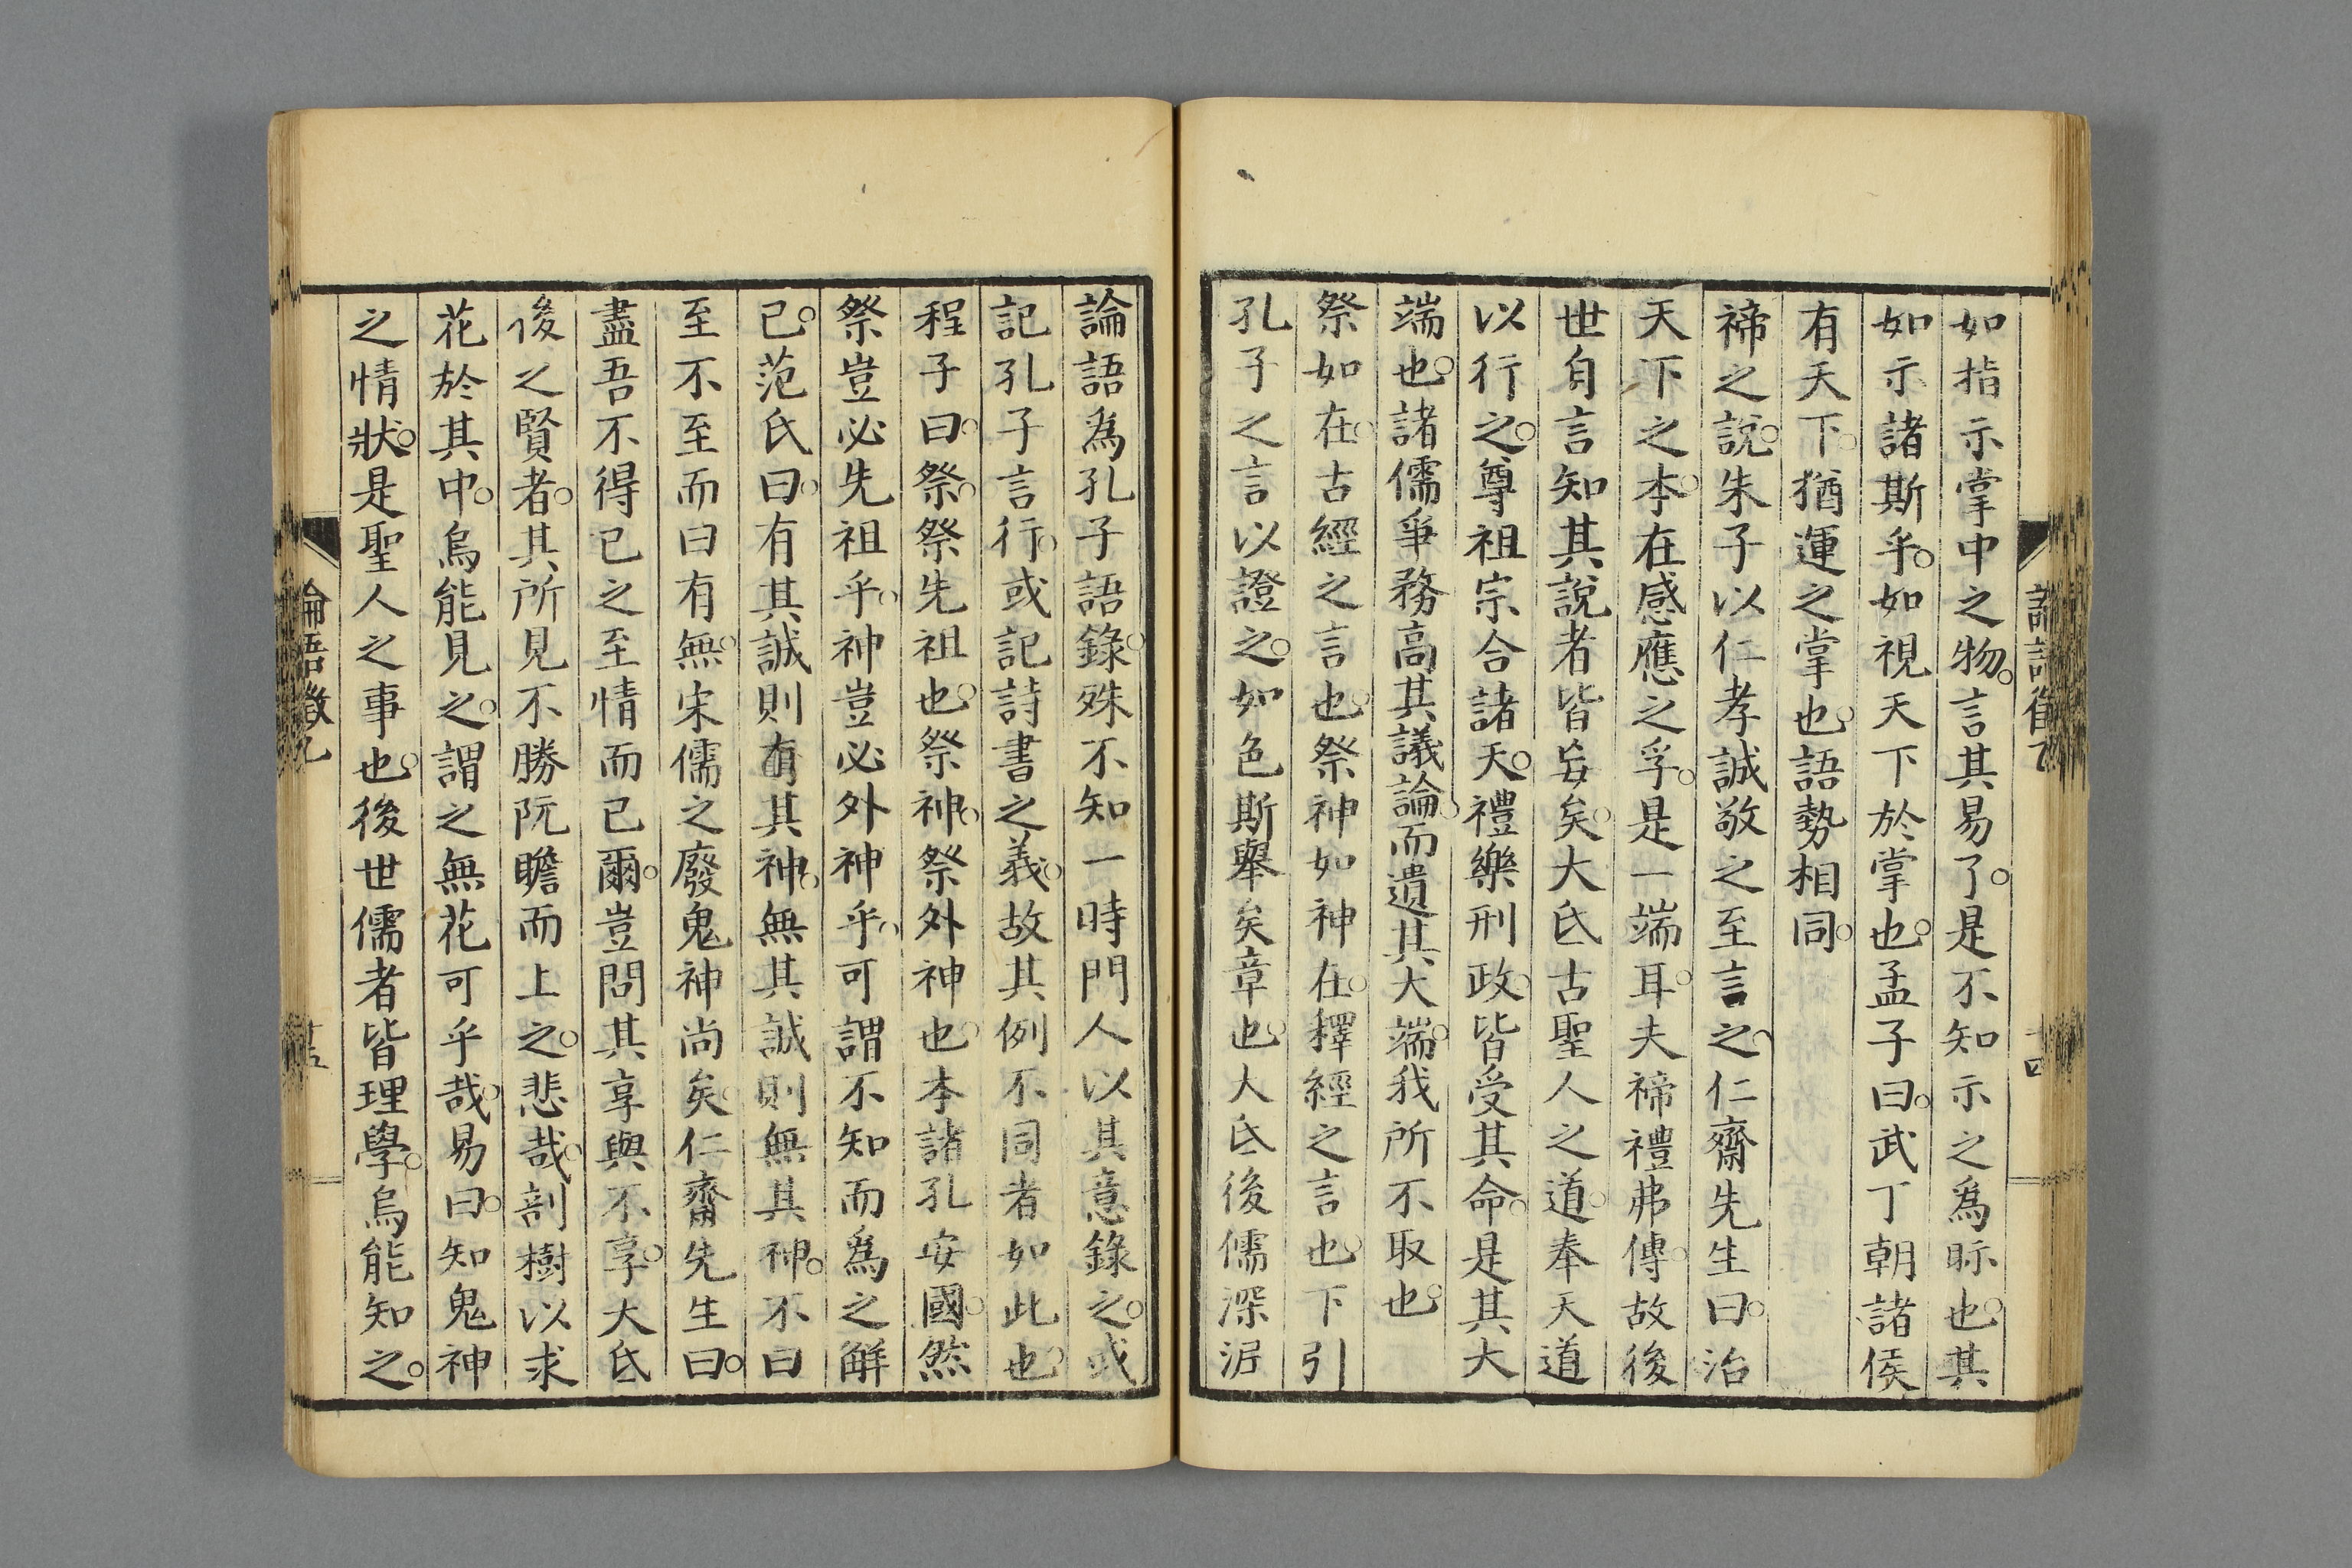 如指示掌中之物。言其易了。是不知示之爲眎也。其
如示諸斯乎。如視天下於掌也。孟子曰。武丁朝諸侯
有天下。猶運之掌也。語勢相同。
禘之說。朱子以仁孝誠敬之至言之。仁齋先生曰。治
天下之本。在感應之孚。是一端耳。夫禘禮弗傳。故後
世自言知其說者皆妄矣。大氐古聖人之道。奉天道
以行之。尊祖宗合諸天。禮樂刑政。皆受其命。是其大
端也。諸儒爭務高其議論。而遺其大端。我所不取也。
祭如在。古經之言也。祭神如神在。釋經之言也。下引
孔子之言以證之。如色斯舉矣章也。大氐後儒深泥
論語爲孔子語錄。殊不知一時門人以其意錄之。或
記孔子言行。或記詩書之義。故其例不同者如此也。
程子曰。祭。祭先祖也。祭神。祭外神也。本諸孔安國。然
祭豈必先祖乎。神豈必外神乎。可謂不知而爲之解
已。范氏曰。有其誠則有其神。無其誠則無其神。不曰
至不至而曰有無。宋儒之廢鬼神尚矣。仁齋先生曰。
盡吾不得已之至情而已爾。豈問其享與不享。大氐
後之賢者。其所見不勝阮瞻而上之。悲哉。剖樹以求
花於其中。烏能見之。謂之無花可乎哉。易曰。知鬼神
之情狀。是聖人之事也。後世儒者皆理學。烏能知之。
論語徵乙